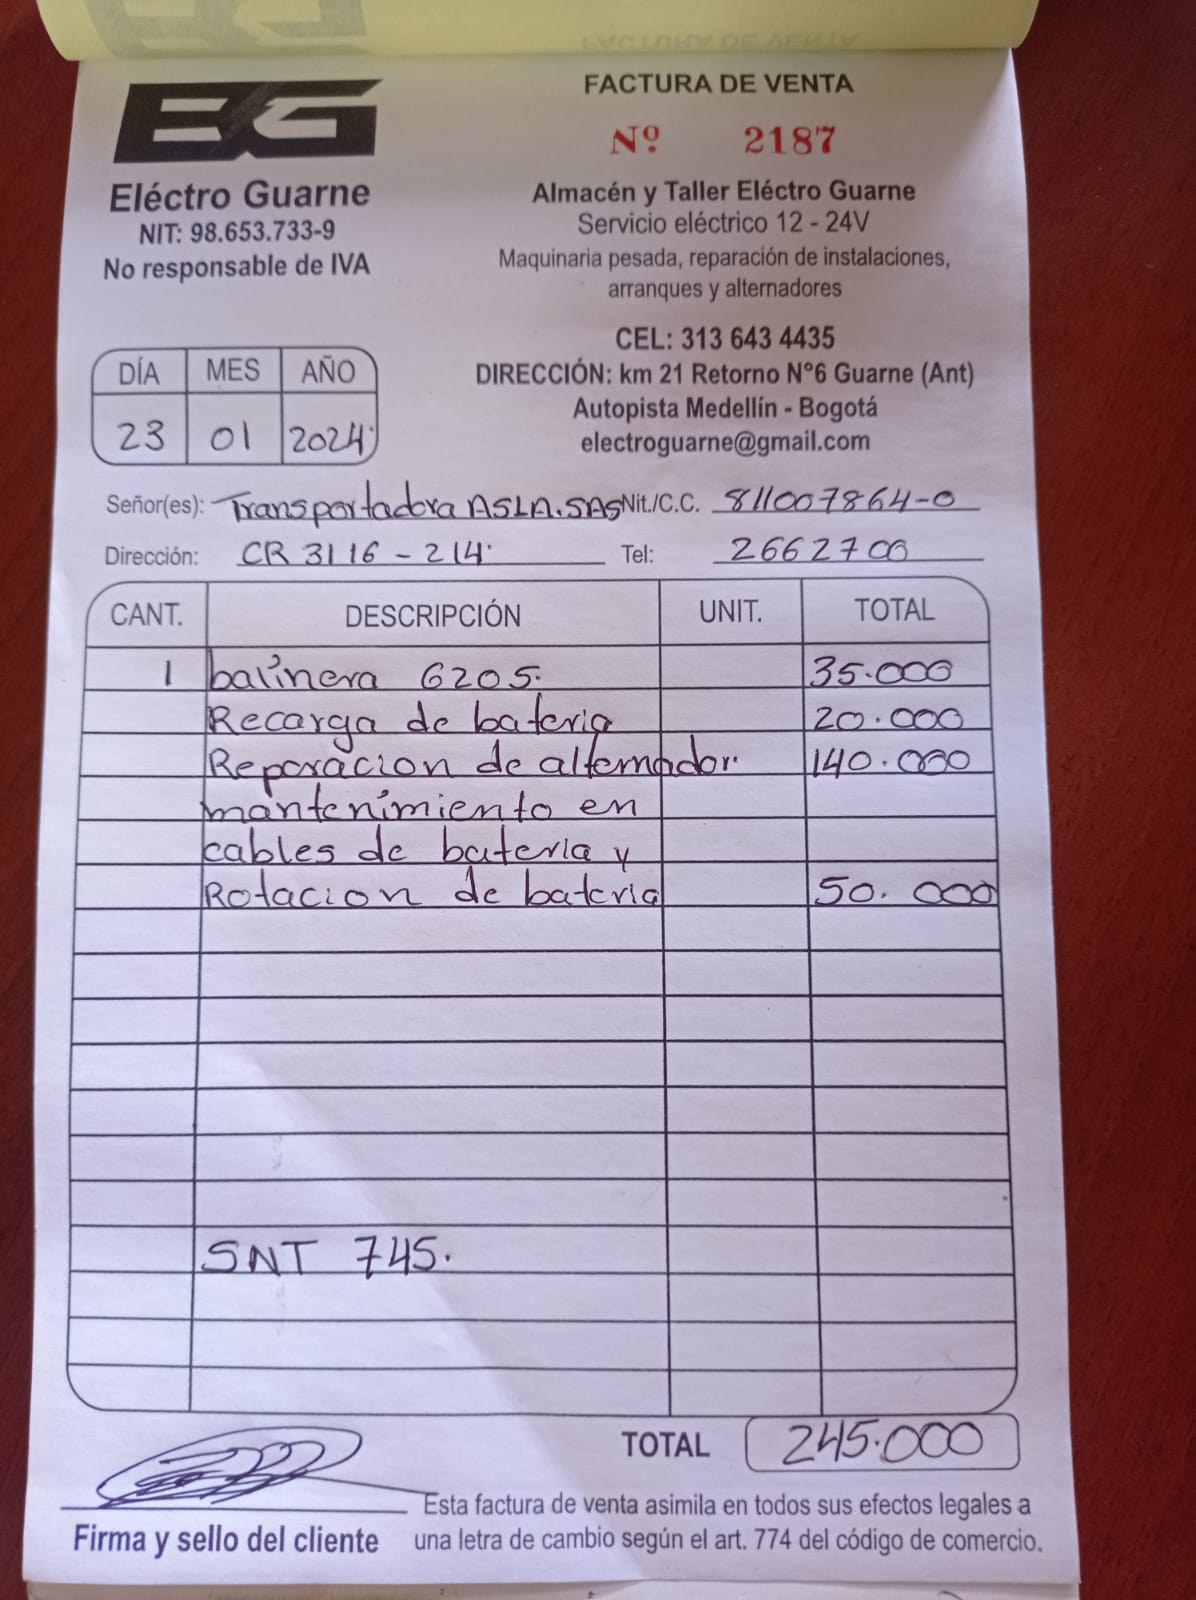 FACTURA DE VENTA
EG
FACTURA DE VENTA
Nº 2187
Eléctro Guarne
NIT: 98.653.733-9
No responsable de IVA
Almacén y Taller Eléctro Guarne
Servicio eléctrico 12 - 24V
Maquinaria pesada, reparación de instalaciones,
arranques y alternadores
CEL: 313 643 4435
DIRECCIÓN: km 21 Retorno N°6 Guarne (Ant)
Autopista Medellín - Bogotá
electroguarne@gmail.com
DÍA MES AÑO
23 01 2024
Señor(es): Transportadora ASLA.SAS Nit./C.C. 811007864-0
Dirección: CR 31 16 - 214 Tel: 2662700
CANT. DESCRIPCIÓN UNIT. TOTAL
1 balinera 6205. 35.000
Recarga de bateria 20.000
Reparacion de alternador. 140.000
mantenimiento en
cables de bateria y
Rotacion de bateria 50.000
SNT 745.
TOTAL 245.000
Firma y sello del cliente
Esta factura de venta asimila en todos sus efectos legales a
una letra de cambio según el art. 774 del código de comercio.